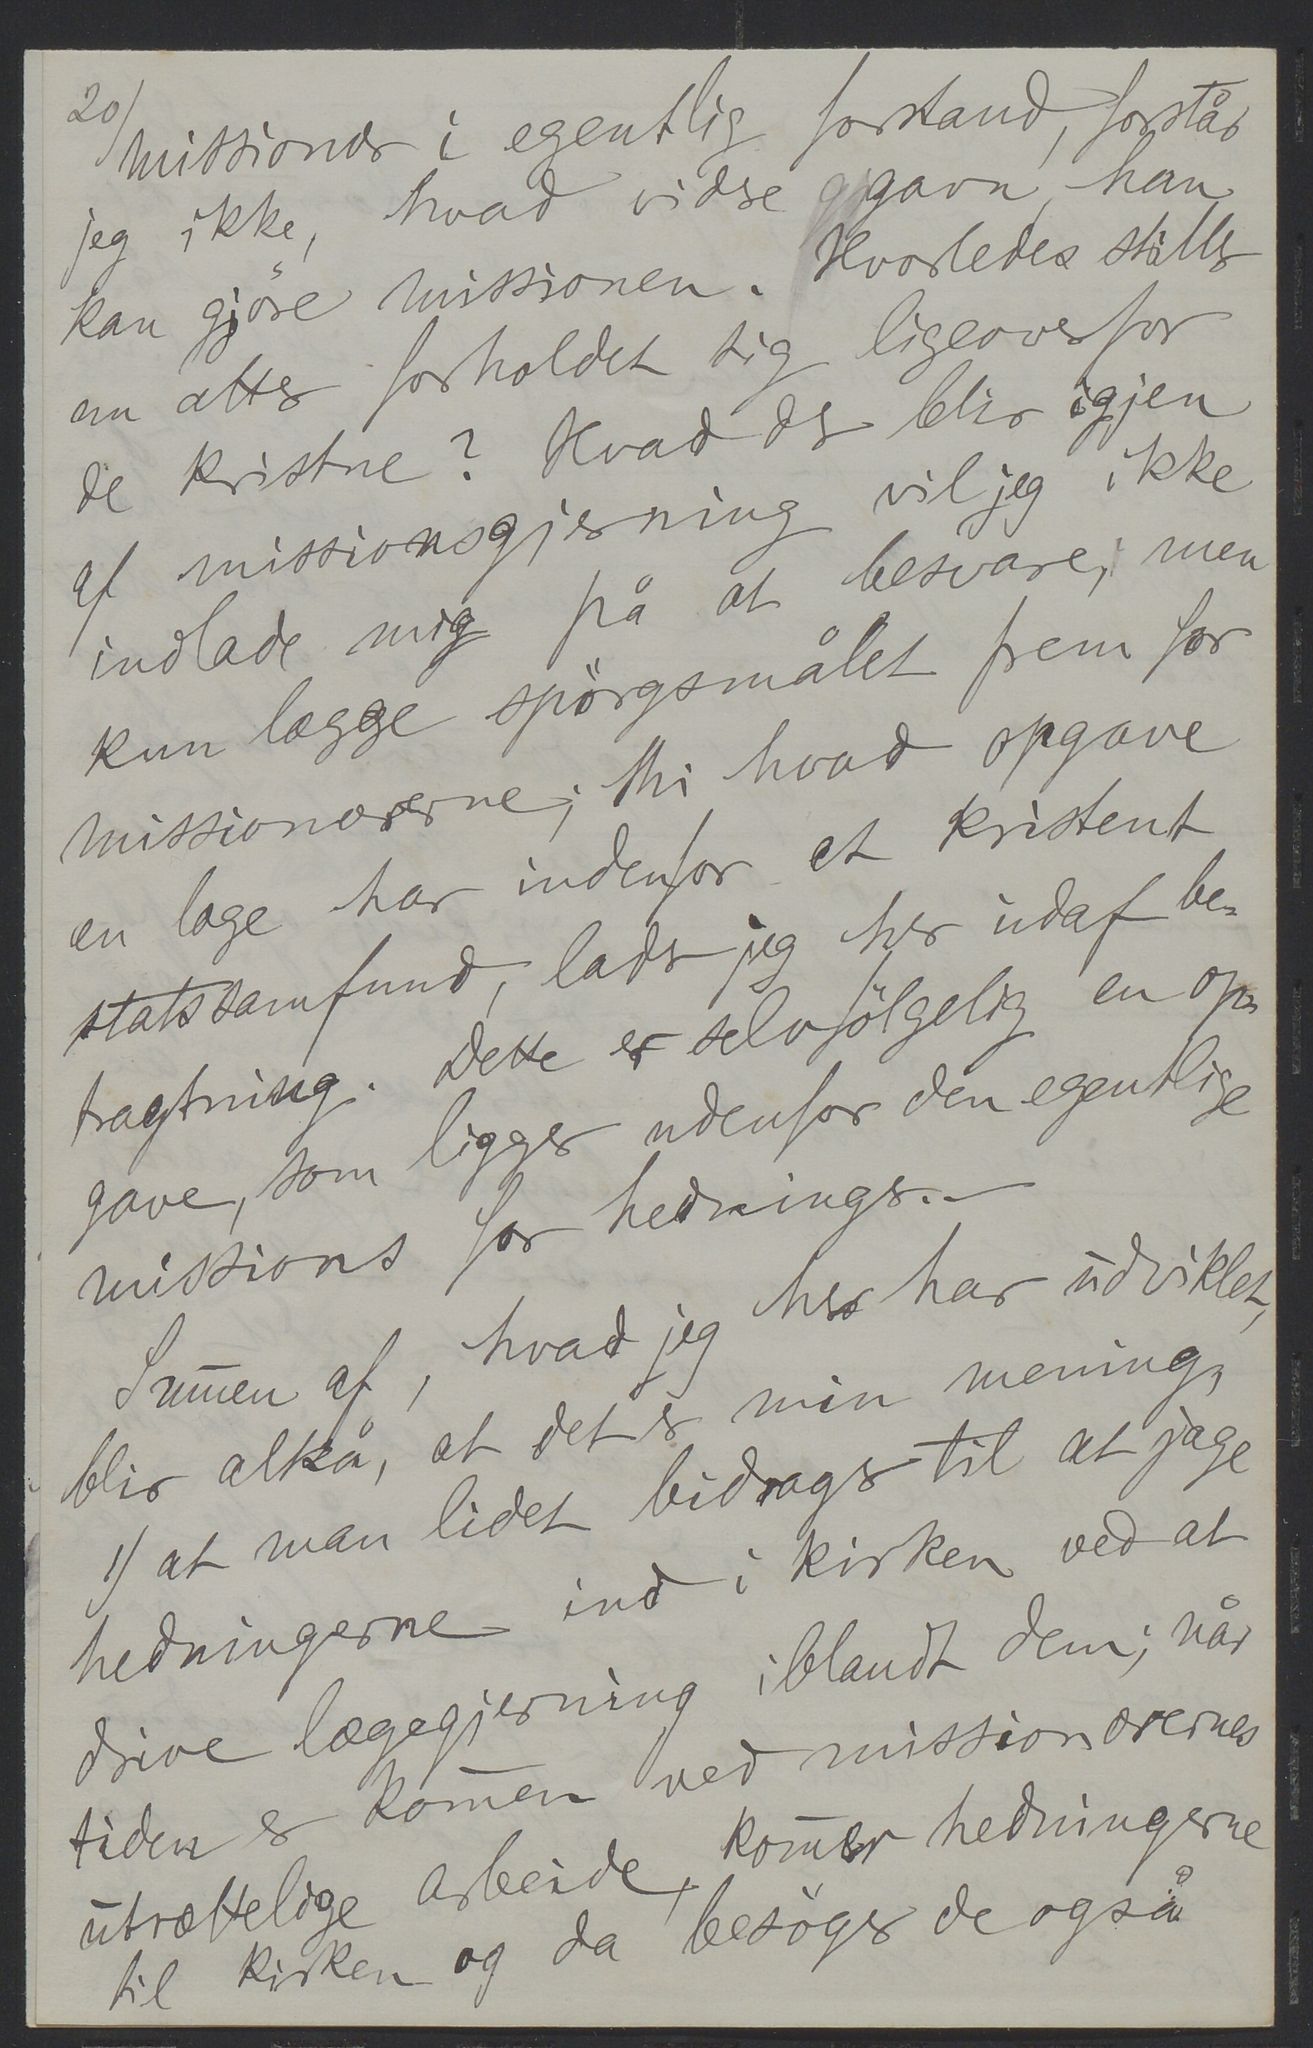 20/
missionær i egentlig forstand, forstår
jeg ikke, hvad vidre gavn han
kan gjöre missionen. Hvorledes stiller
nu atter forholdet sig ligeoverfor
de kristne? Hvad der blir igjen
af missionsgjerning vil jeg ikke
indlade mig på at besvare, men
kun lægge spörgsmålet frem for
missionærerne; thi hvad opgave
en læge har indenfor et kristent
statssamfund, lader jeg her udaf be-
tragtning. Dette er selvfölgelig en op-
gave, som ligger udenfor den egentlige
missions for hedninger. —
Sum̄en af, hvad jeg her har udviklet,
blir altså, at det er min mening,
1/ at man lidet bidrager til at jage
hedningerne ind i kirken ved at
drive lægegjerning iblandt dem; når
tiden er kom̄en ved missionærernes
utrættelige arbeide, kom̄er hedningerne
til kirken og da besöger de også